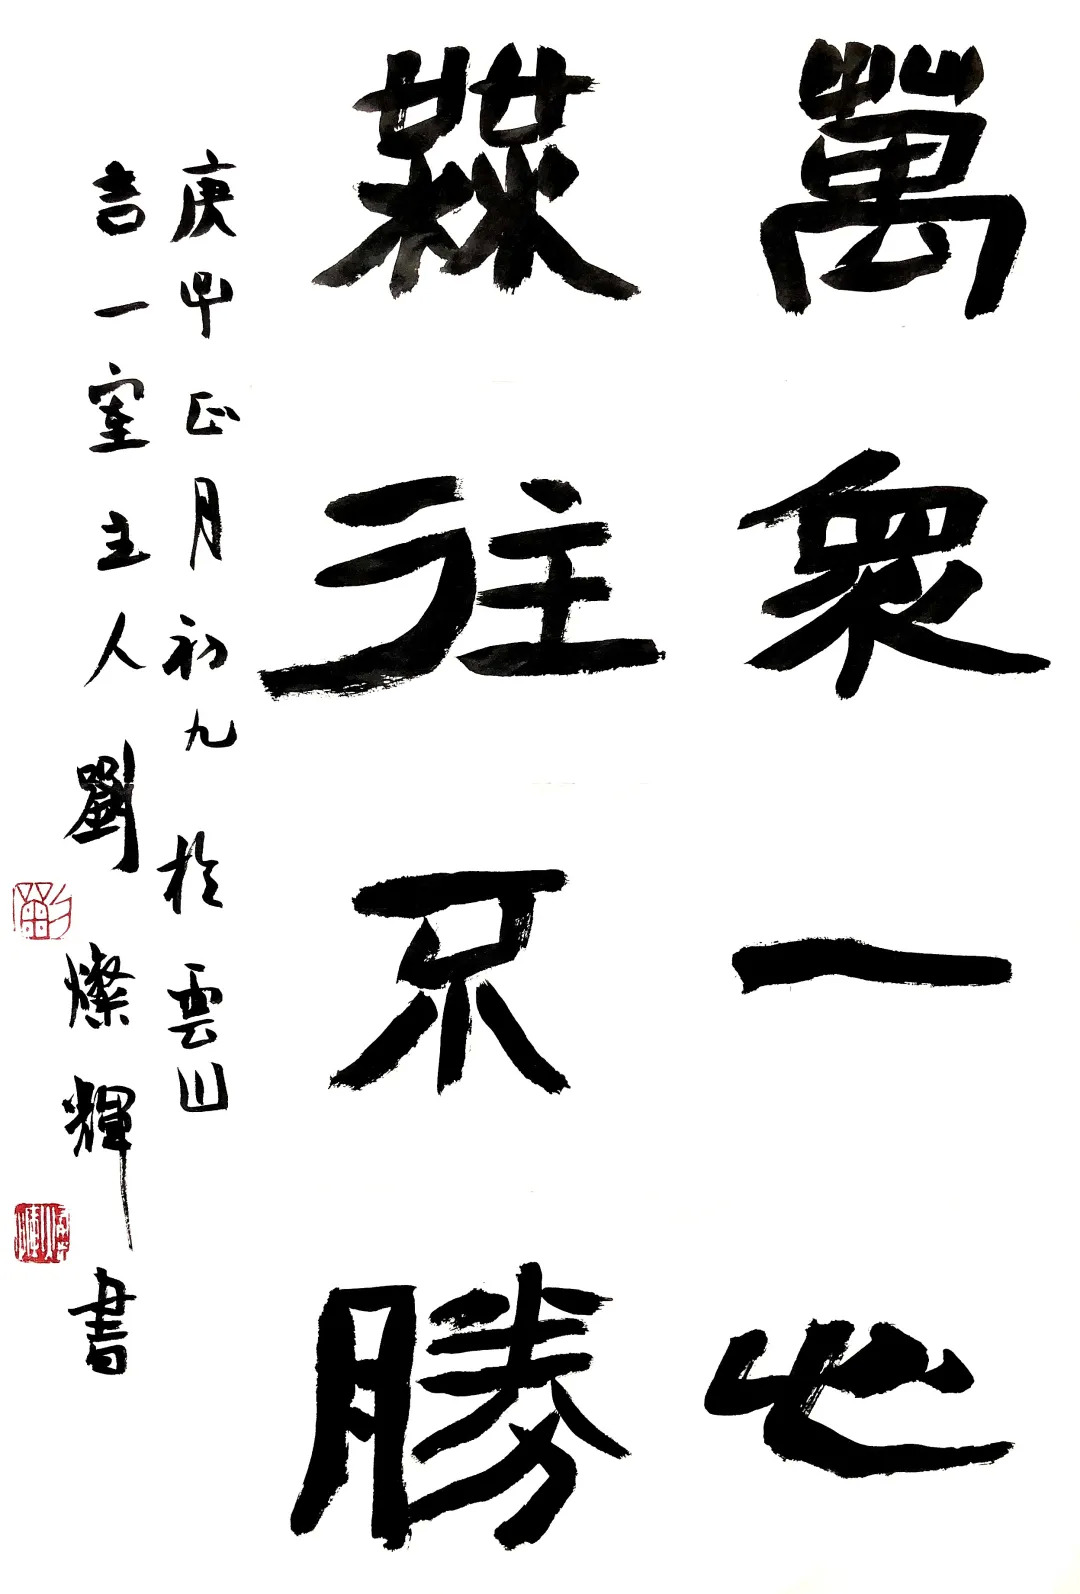 萬眾一心
無往不勝
庚子正月初九於雲山
吉一室主人劉燦輝書